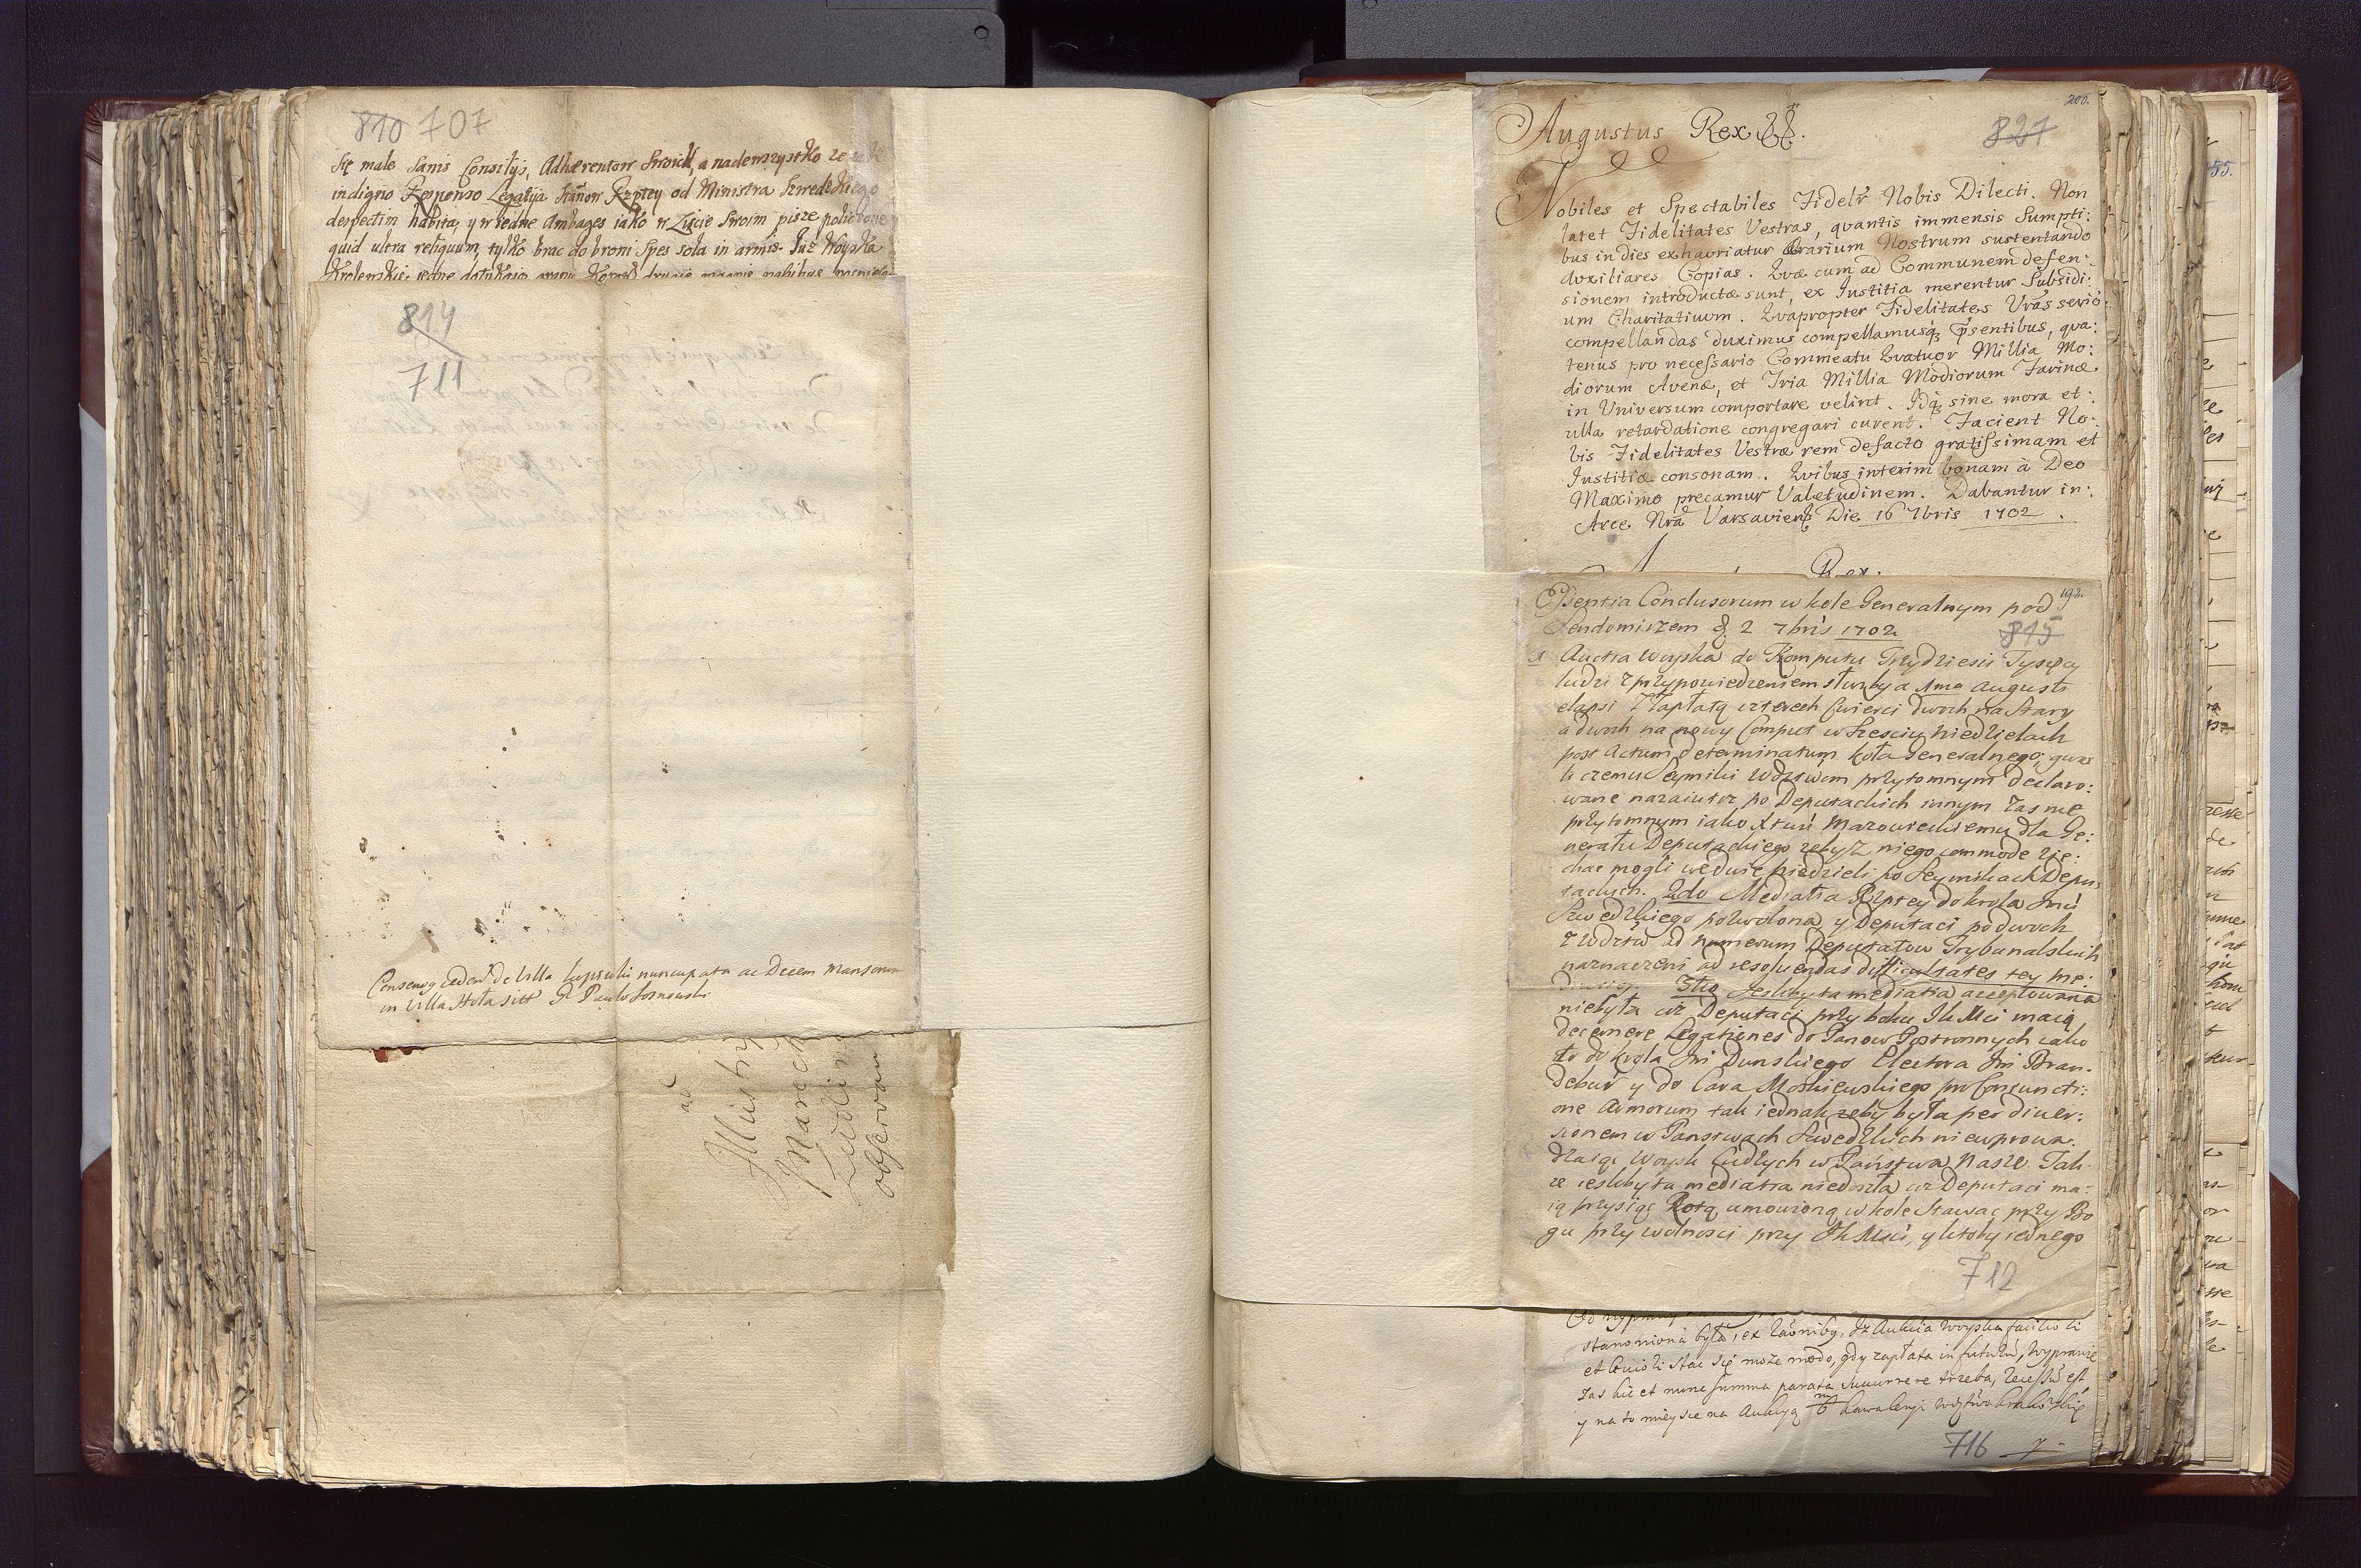 810 707
się male sanis Consilijs, Adhærentow swoich, a nadewszystko ze
indigno Responso Legatija Stanow Rzptey od Ministra Szwedzkiego
despectim habita, y w iedne Ambages iako w Liscie swoim pisze
quid ultra reliquum, tylko brac do broni spes sola in armis. Już Woyska
814
711
de Villa nuncupata ac Decem mansorum
in Villa Hola sitt P. Paulo Sosnowski
ad
Illustr
Marec
observan
200.
827
Augustus Rex
Nobiles et Spectabiles Fidelr Nobis Dilecti. Non
latet Fidelitates Vestras, quantis immensis Sumpti:
bus in dies exhauriatur Ærarium Nostrum sustentando
Auxiliares Copias. Quæ cum ad Communem defen:
sionem introductæ sunt, ex Iustitia merentur Subsidi:
um Charitatiuum. Quapropter Fidelitates Vras serio
compellandas duximus compellamusq; pñsentibus, qua:
tenus pro necessario Commeatu Quatuor Millia Mo:
diorum Avenæ, et Tria Millia Modiorum Farinæ
in Universum comportare velint. Idq; sine mora et
ulla retardatione congregari curent. Facient No:
bis Fidelitates Vestræ rem defacto gratissimam et
Iustitiæ consonam. Quibus interim bonam à Deo
Maximo precamur Valetudinem. Dabantur in:
Arce Nrã Varsaviens Die 16 7bris 1702.
Rex.
198.
Essentia Conclusorum w kole Generalnym pod
Sendomirzem d. 2 7bris 1702
815
1 Auctia woyska do Komputu Trzydziesci Tysięcy
ludzi z przypowiedzeniem służby a 1ma Augusti
elapsi z Zapłatą czterech ćwierci dwoch na stary
a dwoch na nowy Comput w szesciu niedzielach
post Actum determinatum koła Generalnego, quor
k czemu Seymiki Wdztwom przytomnym declaro:
wane nazaiutrz po Deputackich innym zas nie
przytomnym iako Xtwu Mazowieckiemu dla Ge:
nerału Deputackiego zeby z niego commode zie:
chac mogli we dwie niedzieli po Seymikach Depu:
tackych. 2do Mediatia Rzptey do krola Jmci
Szwedzkiego pozwolona y Deputaci po dwoch
z Wdztw ad numerum Deputatow Trybunalskich
naznaczeni ad resoluendas difficultates tey me:
diatiey. 3tio Jesliby ta mediatia acceptowana
niebyła ciż Deputaci przy boku JKMci maią
decernere Legationes do Panow Postronnych iako
to do krola Jmi Dunskiego Electora Jmi Bran:
debur y do Cara Moskiewskiego pro Coniuncti:
one Armorum tak iednak zeby była per diuer:
sionem w Panstwach Szwedzkich niewprowa:
dzaiąc Woysk Cudzych w Państwa Nasze. Tak:
ze iesliby ta mediatia niedoszła ciz Deputaci ma:
ią przysiąc Rotą umowioną w kole stawac przy Bo
gu przy wolnosci przy JKMci, y ktoby iednego
712
stanowiona była, ex rãonibq, Iż Aukcia Woyska facilio li
et stac się może modo, gdy zapłata in futuru, Wyprawie
zas hic et nunc summa parata succurrere trzeba,
y na to mieysce na Aukcyą
716